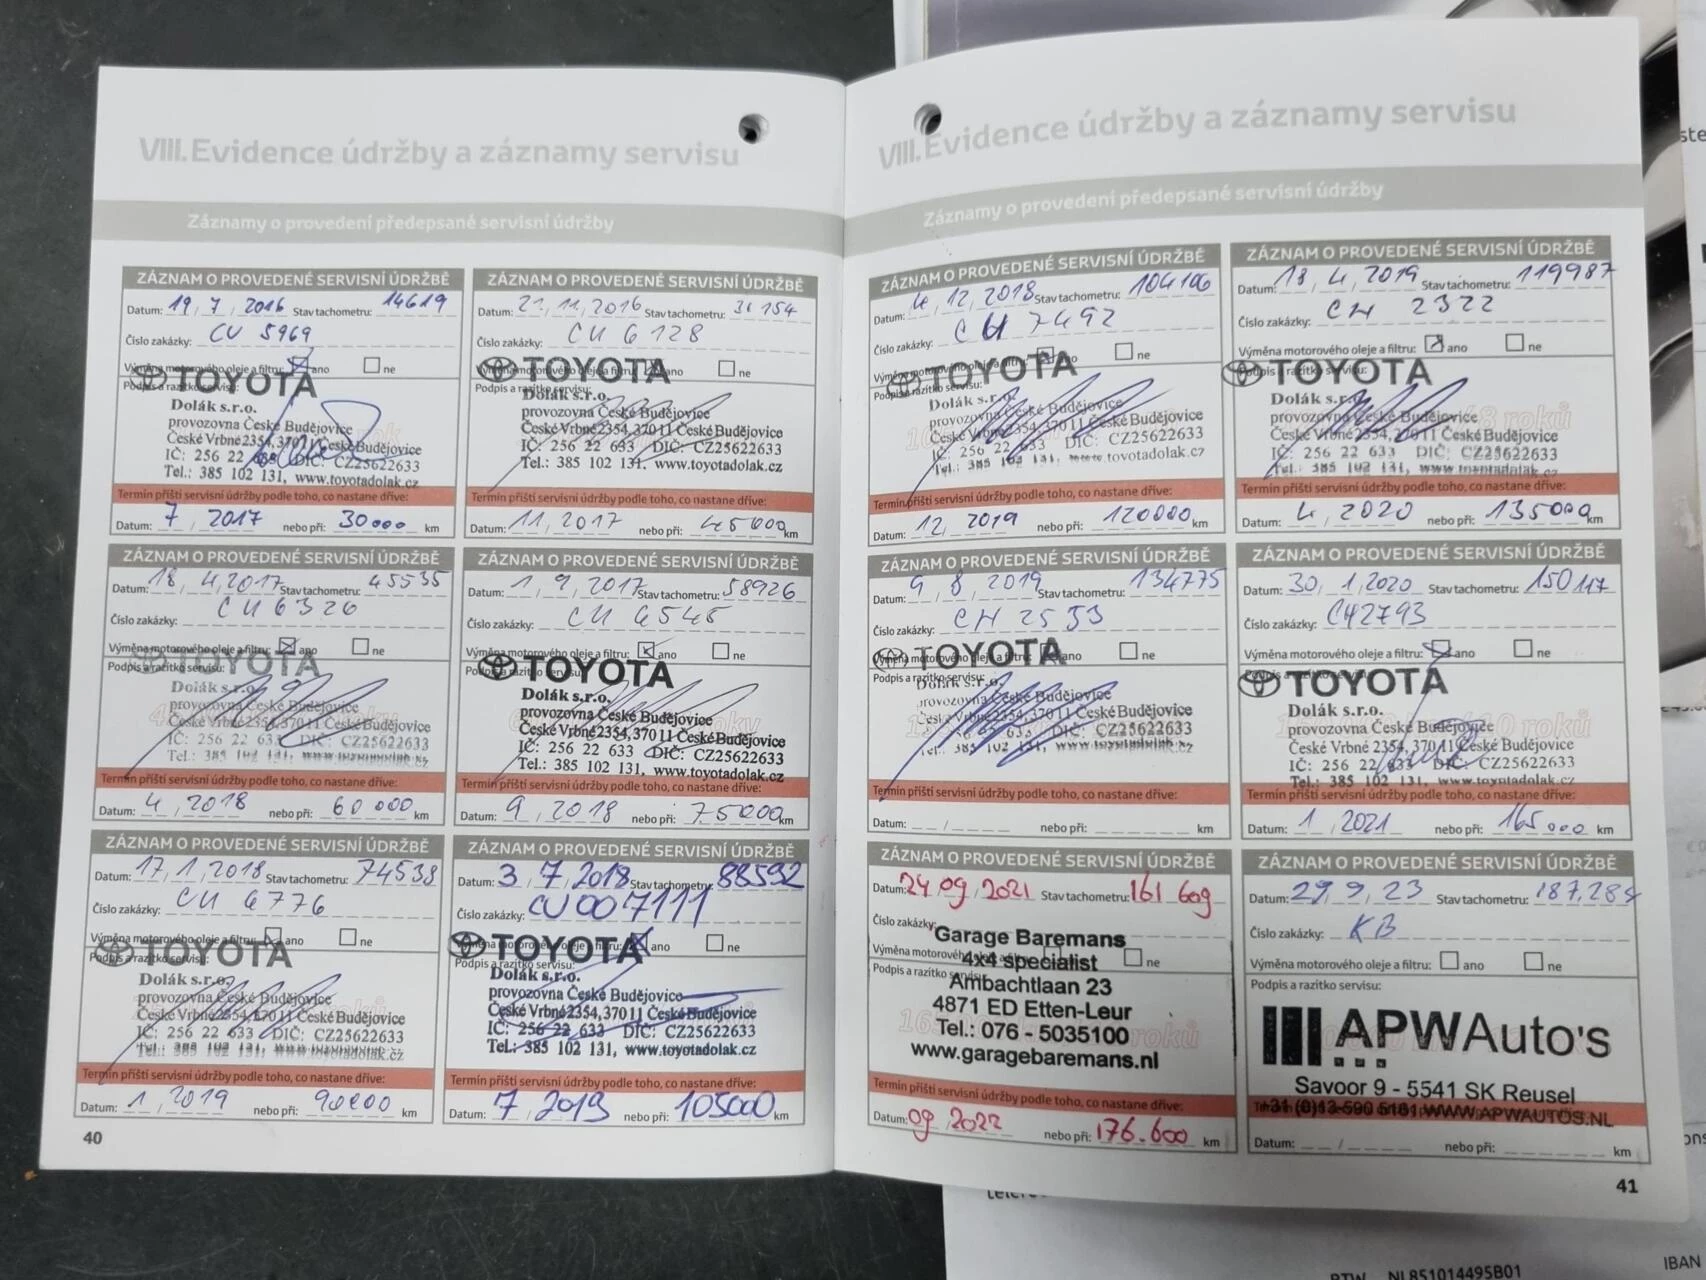 VIII. Evidence údržby a záznamy servisu
Záznamy o provedení předepsané servisní údržby
ZÁZNAM O PROVEDENÉ SERVISNÍ ÚDRŽBĚ
Datum: 19, 7, 2016 Stav tachometru: 14619
Číslo zakázky: CU 5969
Výměna motorového oleje a filtru: ano ne
Podpis a razítko servisu:
TOYOTA
Dolák s.r.o.
provozovna České Budějovice
České Vrbné 2354, 370 11 České Budějovice
IČ: 256 22 633 DIČ: CZ25622633
Tel.: 385 102 131, www.toyotadolak.cz
Termín příští servisní údržby podle toho, co nastane dříve:
Datum: 7, 2017 nebo při: 30000 km
ZÁZNAM O PROVEDENÉ SERVISNÍ ÚDRŽBĚ
Datum: 21, 11, 2016 Stav tachometru: 31154
Číslo zakázky: CU 6128
Výměna motorového oleje a filtru: ano ne
Podpis a razítko servisu:
TOYOTA
Dolák s.r.o.
provozovna České Budějovice
České Vrbné 2354, 370 11 České Budějovice
IČ: 256 22 633 DIČ: CZ25622633
Tel.: 385 102 131, www.toyotadolak.cz
Termín příští servisní údržby podle toho, co nastane dříve:
Datum: 11, 2017 nebo při: 45000 km
ZÁZNAM O PROVEDENÉ SERVISNÍ ÚDRŽBĚ
Datum: 18, 4, 2017 Stav tachometru: 45535
Číslo zakázky: CU 6326
Výměna motorového oleje a filtru: ano ne
Podpis a razítko servisu:
TOYOTA
Dolák s.r.o.
provozovna České Budějovice
České Vrbné 2354, 370 11 České Budějovice
IČ: 256 22 633 DIČ: CZ25622633
Tel.: 385 102 131, www.toyotadolak.cz
Termín příští servisní údržby podle toho, co nastane dříve:
Datum: 4, 2018 nebo při: 60000 km
ZÁZNAM O PROVEDENÉ SERVISNÍ ÚDRŽBĚ
Datum: 1, 9, 2017 Stav tachometru: 58926
Číslo zakázky: CU 6545
Výměna motorového oleje a filtru: ano ne
Podpis a razítko servisu:
TOYOTA
Dolák s.r.o.
provozovna České Budějovice
České Vrbné 2354, 370 11 České Budějovice
IČ: 256 22 633 DIČ: CZ25622633
Tel.: 385 102 131, www.toyotadolak.cz
Termín příští servisní údržby podle toho, co nastane dříve:
Datum: 9, 2018 nebo při: 75000 km
ZÁZNAM O PROVEDENÉ SERVISNÍ ÚDRŽBĚ
Datum: 17, 1, 2018 Stav tachometru: 74538
Číslo zakázky: CU 6776
Výměna motorového oleje a filtru: ano ne
Podpis a razítko servisu:
TOYOTA
Dolák s.r.o.
provozovna České Budějovice
České Vrbné 2354, 370 11 České Budějovice
IČ: 256 22 633 DIČ: CZ25622633
Tel.: 385 102 131, www.toyotadolak.cz
Termín příští servisní údržby podle toho, co nastane dříve:
Datum: 1, 2019 nebo při: 90000 km
ZÁZNAM O PROVEDENÉ SERVISNÍ ÚDRŽBĚ
Datum: 3, 7, 2018 Stav tachometru: 88592
Číslo zakázky: CU007111
Výměna motorového oleje a filtru: ano ne
Podpis a razítko servisu:
TOYOTA
Dolák s.r.o.
provozovna České Budějovice
České Vrbné 2354, 370 11 České Budějovice
IČ: 256 22 633 DIČ: CZ25622633
Tel.: 385 102 131, www.toyotadolak.cz
Termín příští servisní údržby podle toho, co nastane dříve:
Datum: 7, 2019 nebo při: 105000 km
40
VIII. Evidence údržby a záznamy servisu
Záznamy o provedení předepsané servisní údržby
ZÁZNAM O PROVEDENÉ SERVISNÍ ÚDRŽBĚ
Datum: 4, 12, 2018 Stav tachometru: 104106
Číslo zakázky: CU 7492
Výměna motorového oleje a filtru: ano ne
Podpis a razítko servisu:
TOYOTA
Dolák s.r.o.
provozovna České Budějovice
České Vrbné 2354, 370 11 České Budějovice
IČ: 256 22 633 DIČ: CZ25622633
Tel.: 385 102 131, www.toyotadolak.cz
Termín příští servisní údržby podle toho, co nastane dříve:
12, 2019 nebo při: 120000 km
ZÁZNAM O PROVEDENÉ SERVISNÍ ÚDRŽBĚ
Datum: 18, 4, 2019 Stav tachometru: 119987
Číslo zakázky: CH 2322
Výměna motorového oleje a filtru: ano ne
Podpis a razítko servisu:
TOYOTA
Dolák s.r.o.
provozovna České Budějovice
České Vrbné 2354, 370 11 České Budějovice
IČ: 256 22 633 DIČ: CZ25622633
Tel.: 385 102 131, www.toyotadolak.cz
Termín příští servisní údržby podle toho, co nastane dříve:
Datum: 4, 2020 nebo při: 135000 km
ZÁZNAM O PROVEDENÉ SERVISNÍ ÚDRŽBĚ
Datum: 9, 8, 2019 Stav tachometru: 134775
Číslo zakázky: CH 2553
Výměna motorového oleje a filtru: ano ne
Podpis a razítko servisu:
TOYOTA
Dolák s.r.o.
provozovna České Budějovice
České Vrbné 2354, 370 11 České Budějovice
IČ: 256 22 633 DIČ: CZ25622633
Tel.: 385 102 131, www.toyotadolak.cz
Termín příští servisní údržby podle toho, co nastane dříve:
Datum: nebo při: km
ZÁZNAM O PROVEDENÉ SERVISNÍ ÚDRŽBĚ
Datum: 30, 1, 2020 Stav tachometru: 150117
Číslo zakázky: CH2793
Výměna motorového oleje a filtru: ano ne
Podpis a razítko servisu:
TOYOTA
Dolák s.r.o.
provozovna České Budějovice
České Vrbné 2354, 370 11 České Budějovice
IČ: 256 22 633 DIČ: CZ25622633
Tel.: 385 102 131, www.toyotadolak.cz
Termín příští servisní údržby podle toho, co nastane dříve:
Datum: 1, 2021 nebo při: 165000 km
ZÁZNAM O PROVEDENÉ SERVISNÍ ÚDRŽBĚ
Datum: 24, 09, 2021 Stav tachometru: 161 609
Číslo zakázky:
Garage Baremans
Výměna motorového ne
4x4 specialist
Podpis a razítko servisu:
Ambachtlaan 23
4871 ED Etten-Leur
Tel.: 076 - 5035100
www.garagebaremans.nl
Termín příští servisní údržby podle toho, co nastane dříve:
Datum: 09, 2022 nebo při: 176.600 km
ZÁZNAM O PROVEDENÉ SERVISNÍ ÚDRŽBĚ
Datum: 29, 9, 23 Stav tachometru: 187.284
Číslo zakázky: KB
Výměna motorového oleje a filtru: ano ne
Podpis a razítko servisu:
APWAuto's
Savoor 9 - 5541 SK Reusel
+31 (0)13-590 5181 WWW.APWAUTOS.NL
Datum: nebo při: km
41
BTW NL851014495B01
IBAN